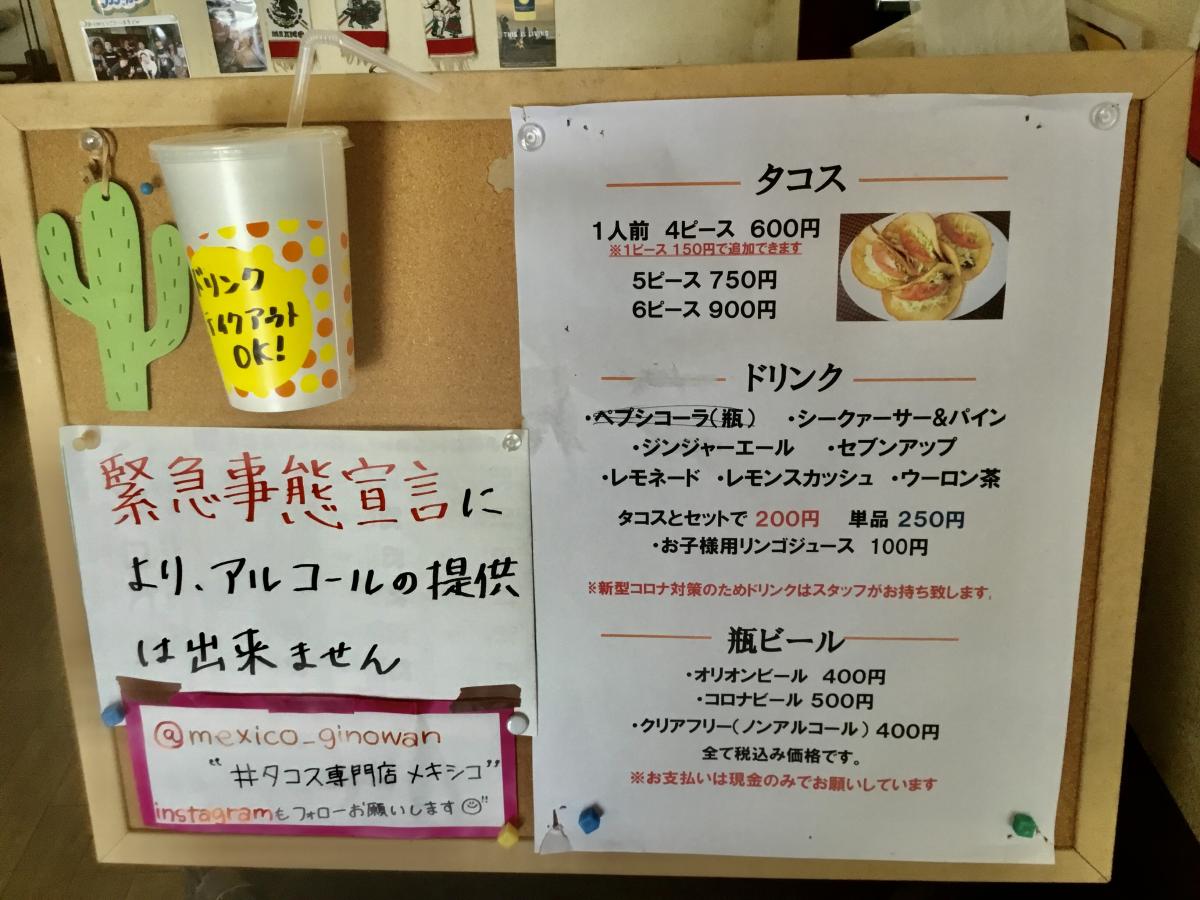 MEXICO
THIS IS LIVING
ドリンク
テイクアウト
OK!
緊急事態宣言に
より、アルコールの提供
は出来ません
@mexico_ginowan
“#タコス専門店 メキシコ”
instagramもフォローお願いします☺"
タコス
1人前 4ピース 600円
※1ピース 150円で追加できます
5ピース 750円
6ピース 900円
ドリンク
・ペプシコーラ(瓶) ・シークァーサー&パイン
・ジンジャーエール ・セブンアップ
・レモネード ・レモンスカッシュ ・ウーロン茶
タコスとセットで 200円 単品 250円
・お子様用リンゴジュース 100円
※新型コロナ対策のためドリンクはスタッフがお持ち致します。
瓶ビール
・オリオンビール 400円
・コロナビール 500円
・クリアフリー(ノンアルコール) 400円
全て税込み価格です。
※お支払いは現金のみでお願いしています